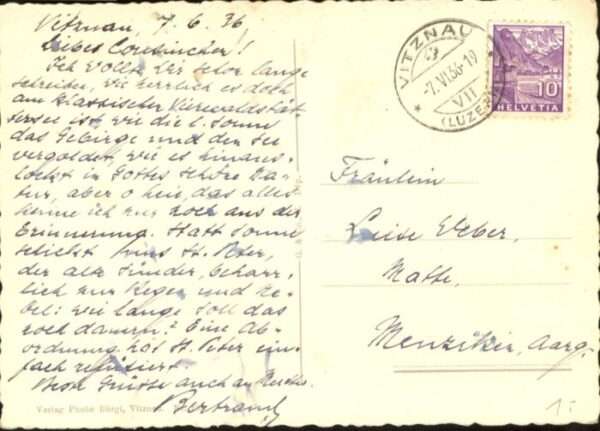 Vitznau, 7.6.36
Liebes Cousinchen!
Ich wollte Dir schon lange
schreiben, wie herrlich es doch
am klassischen Vierwaldstät-
tersee ist, wie die l. Sonne
das Gebirge und den See
vergoldet, wie es hinaus-
lockt in Gottes schöne Na-
tur, aber o nein, das alles
kenne ich nur noch aus der
Erinnerung. Statt Sonne
schickt uns St. Peter,
der alte Sünder, beharr-
lich nur Regen und Ne-
bel: wie lange soll das
noch dauern? Eine Ab-
ordnung hat St. Peter ein-
fach refüsiert.
Beste Grüsse auch an
Bertrand
Verlag Photo Bürgi, Vitznau
VITZNAU
-7.VI.36-19
VII
(LUZERN)
10
HELVETIA
Fräulein
Luise Weber,
Matte,
Menziken, Aarg.
1.-